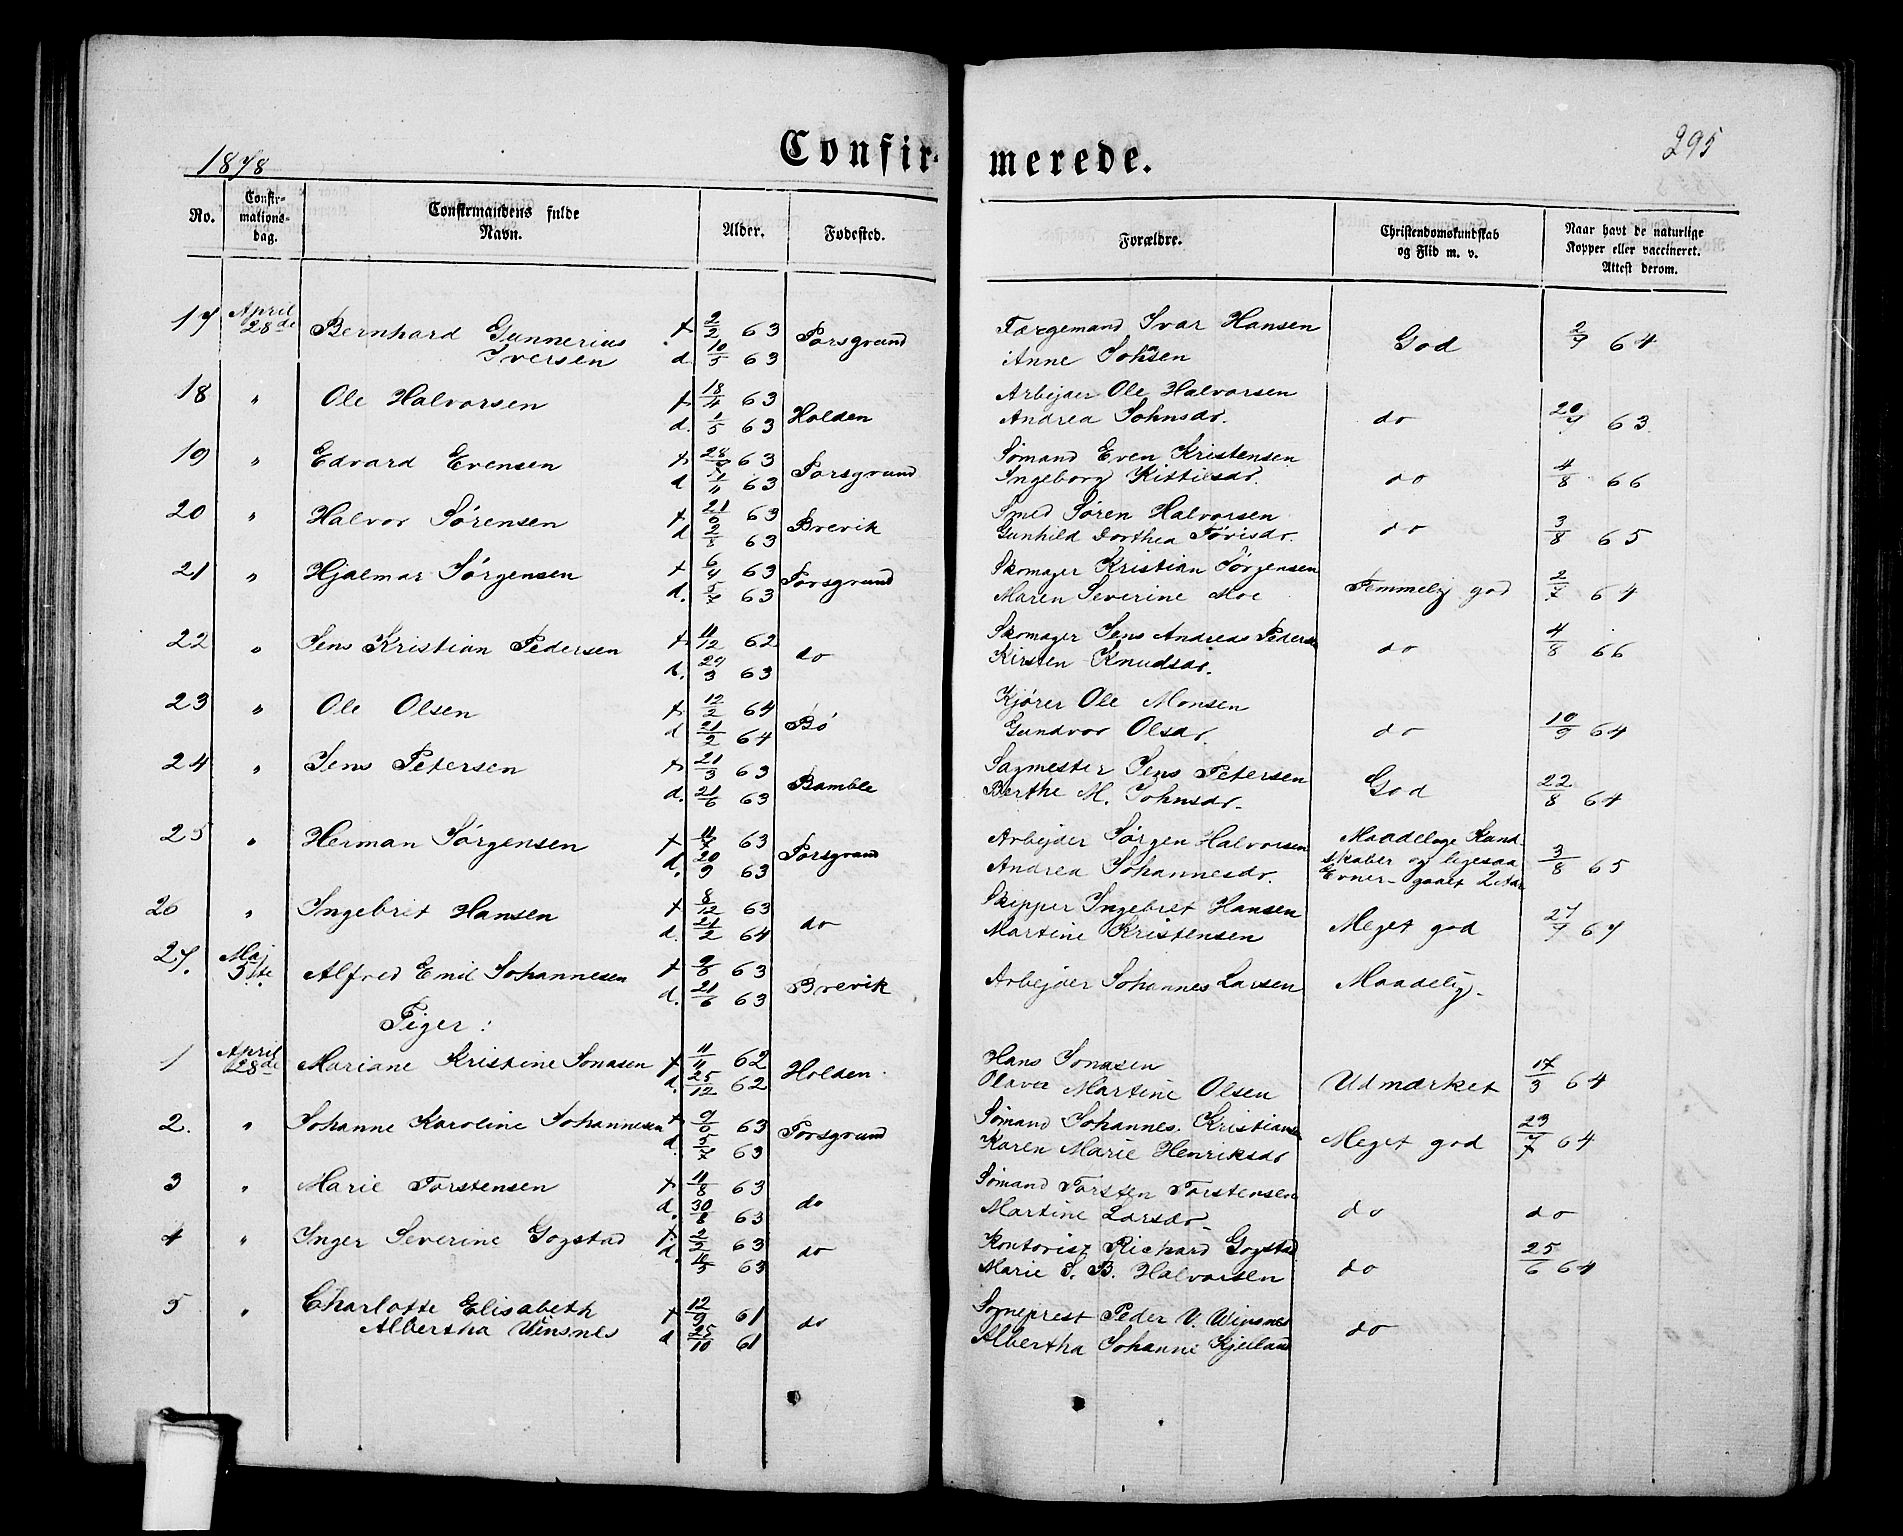 1878
Confir-
merede.
295
No.
Confir-
mations-
dag.
Confirmandens fulde
Navn.
Alder.
Fødested.
Forældre.
Christendomskundskab
og Flid m. v.
Naar havt de naturlige
Kopper eller vaccineret.
Attest derom.
17 April 28de Bernhard Gunnerius f. 2/2 63 Porsgrund Færgemand Ivar Hansen God 2/9 64
Iversen d. 10/5 63 Anne Johnsen
18 " Ole Halvorsen f. 18/4 63 Holden Arbejder Ole Halvorsen
d. 1/5 63 Andrea Johnsdr. do 20/9 63
19 " Edvard Evensen f. 28/ 63 Porsgrund Sømand Even Kristensen
d 1/11 63 Ingeborg Kittilsdr. do 4/8 66
20 " Halvor Sørensen f. 21/6 63 Brevik Smed Søren Halvorsen
d 2/8 63 Gunhild Dorthea Tørisdr. do 3/8 65
21 " Hjalmar Jørgensen f 6/4 63 Porsgrund Skomager Kristian Jørgensen
d. 5/7 63 Maren Severine Moe Temmelig god 2/7 64
22 " Jens Kristian Pedersen f 11/12 62 do Skomager Jens Andreas Pedersen
d. 29/3 63 Kirsten Knudsdr. do 4/8 66
23 " Ole Olsen f. 12/2 64 Bø Kjører Ole Monsen
d 21/2 64 Gundvor Olsdr. do 10/9 64
24 " Jens Petersen f 21/3 63 Bamble Sagmester Jens Petersen
d. 21/6 63 Berthe M. Johnsdr. God 22/8 64
25 " Herman Jørgensen f 11/7 63 Porsgrund Arbejder Jørgen Halvorsen Maadelige Kund
d. 20/9 63 Andrea Johannesdr. skaber og ligesaa
Evner - gaaet 2 Aar 3/8 65
26 " Ingebret Hansen f 8/12 63 do Skipper Ingebret Hansen
d. 21/2 64 Martine Kristensen Meget god 27/9 67
27. Maj 5te. Alfred Emil Johannesen f 9/5 63 Brevik Arbejder Johannes Larsen Maadelig.
d. 21/6 63
Piger:
1 April 28de Mariane Kristine Jonasen f 11/11 62 Holden. Hans Jonasen
d. 25/12 62 Olava Martine Olsen Udmærket 17/3 64
2. " Johanne Karoline Johannesen f 9/6 63 Porsgrund Sømand Johannes Kristiansen
d. 5/7 63 Karen Marie Henriksdr Meget god 23/7 64
3 " Marie Torstensen f 11/8 63 do Sømand Torsten Torstensen
d. 30/8 63 Martine Larsdr. do do
4 " Inger Severine Gogstad f. 2/2 63 do Kontorist Richard Gogstad
d. 11/5 63 Marie S. B. Halvorsen do 25/6 64
5 " Charlotte Elisabeth f 12/9 61 do Sogneprest Peder V. Winsnes
Albertha Winsnes d 25/10 61 Albertha Johanne Kjelland do